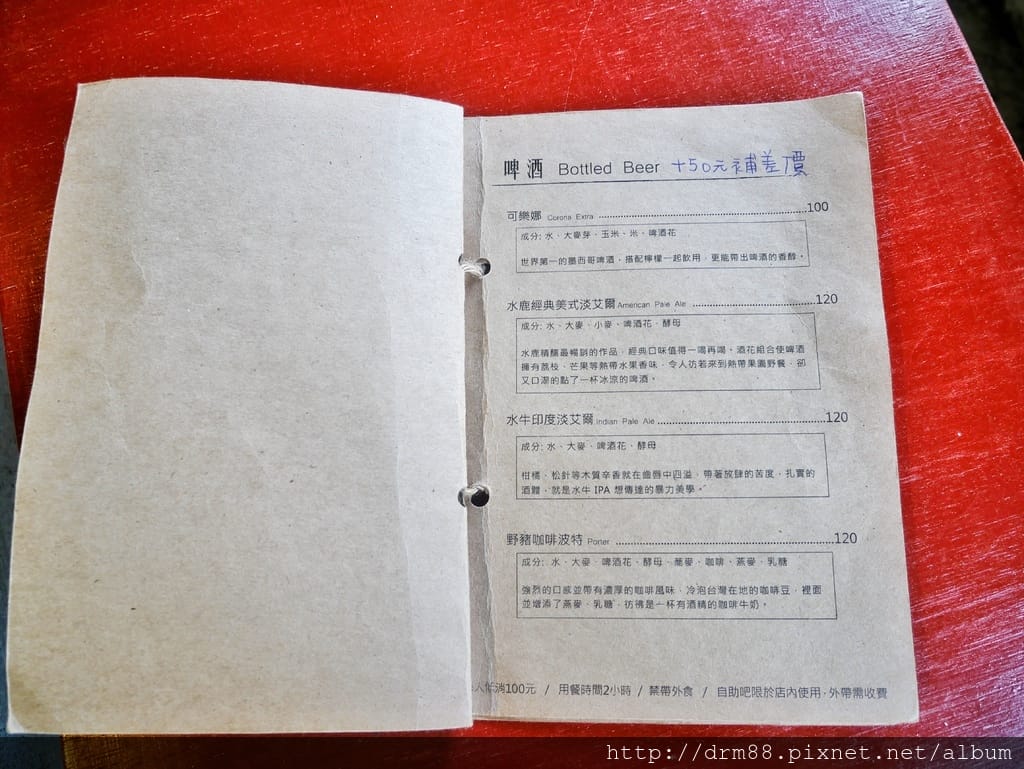 啤酒 Bottled Beer +50元補差價
可樂娜 Corona Extra 100
成分: 水、大麥芽、玉米、米、啤酒花
世界第一的墨西哥啤酒，搭配檸檬一起飲用，更能帶出啤酒的香醇。
水鹿經典美式淡艾爾 American Pale Ale 120
成分: 水、大麥、小麥、啤酒花、酵母
水鹿精釀最暢銷的作品，經典口味值得一喝再喝。酒花組合使啤酒
擁有荔枝、芒果等熱帶水果香味，令人彷若來到熱帶果園野餐，卻
又口渴的點了一杯冰涼的啤酒。
水牛印度淡艾爾 Indian Pale Ale 120
成分: 水、大麥、啤酒花、酵母
柑橘、松針等木質辛香就在齒唇中四溢，帶著放肆的苦度，扎實的
酒體，就是水牛 IPA 想傳達的暴力美學。
野豬咖啡波特 Porter 120
成分: 水、大麥、啤酒花、酵母、蕎麥、咖啡、燕麥、乳糖
強烈的口感並帶有濃厚的咖啡風味，冷泡台灣在地的咖啡豆，裡面
並增添了燕麥、乳糖，彷彿是一杯有酒精的咖啡牛奶。
人低消100元 / 用餐時間2小時 / 禁帶外食 / 自助吧限於店內使用，外帶需收費
http://drm88.pixnet.net/album